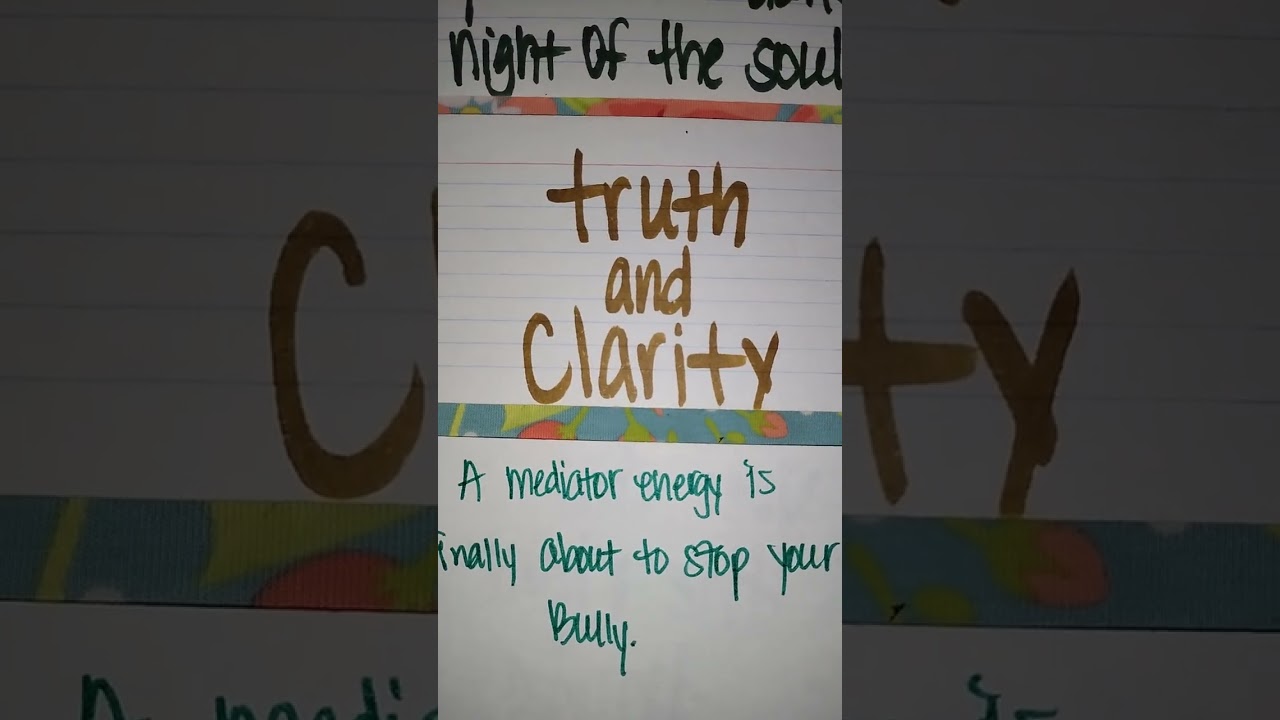 night of the soul
truth
and
Clarity
A mediator energy is
inally about to stop your
Bully.